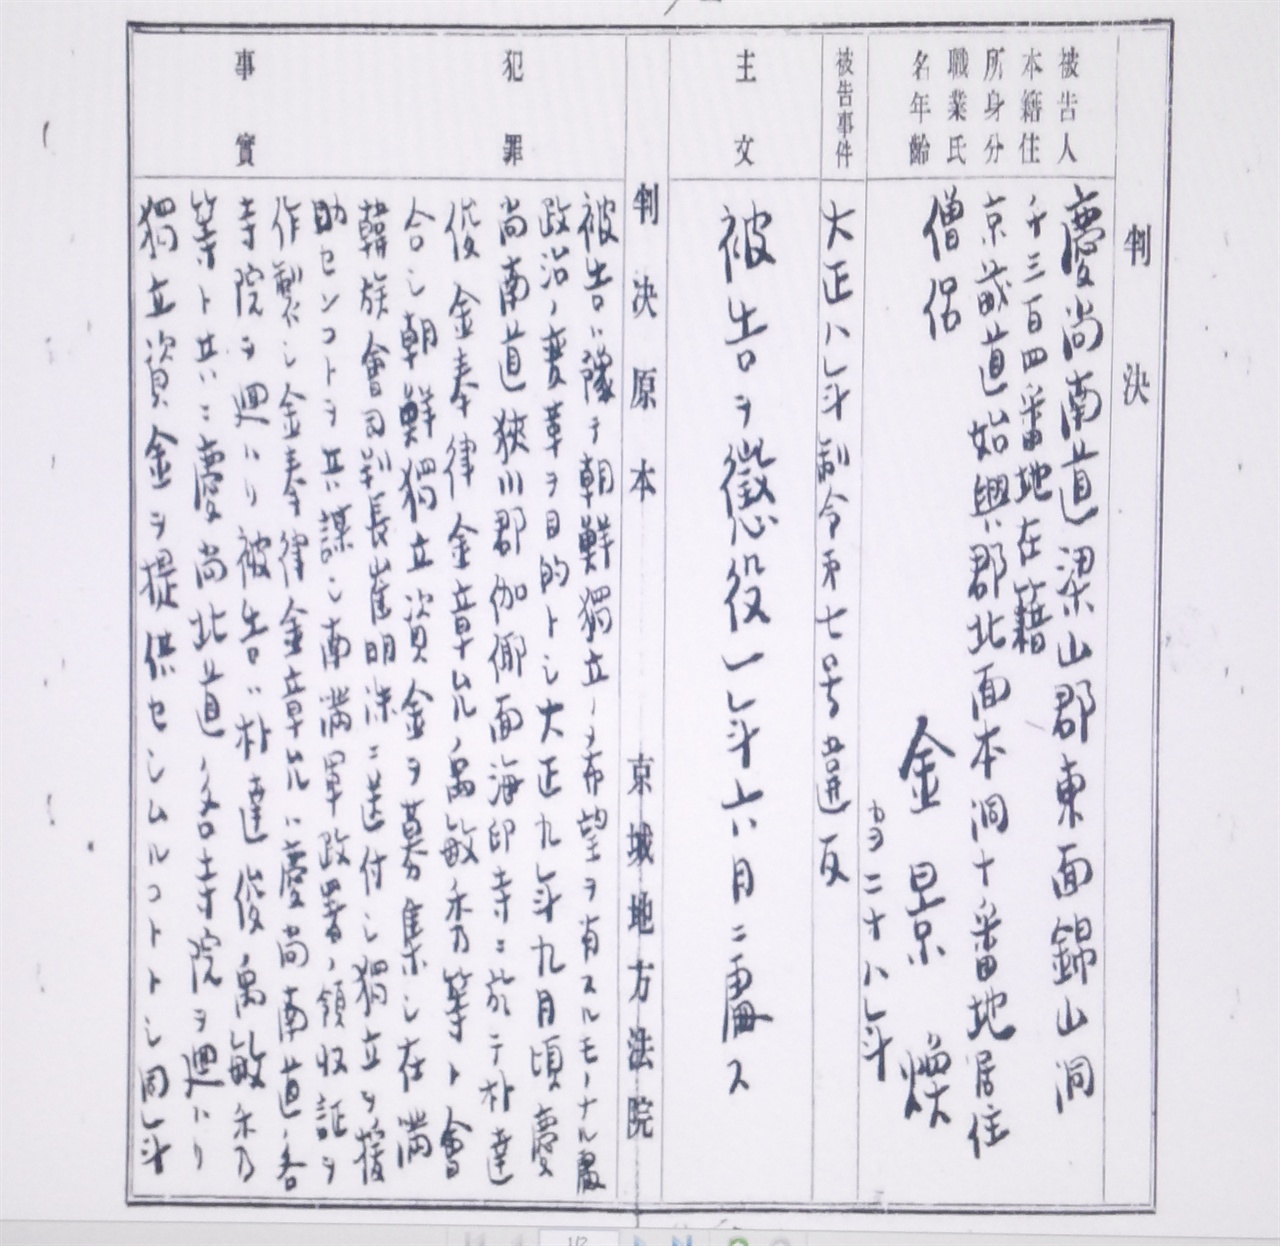 判決
被告人
本籍住
所身分
職業氏
名年齢
慶尚南道梁山郡東面錦山洞
千三百四番地在籍
京畿道始興郡北面本洞十番地居住
僧侶
金景煥
当二十八年
被告事件
大正八年制令第七号違反
主文
被告ヲ懲役一年六月ニ處ス
判決原本 京城地方法院
犯罪
事實
被告ハ豫テ朝鮮獨立ノ希望ヲ有スルモノナル處
政治ノ変革ヲ目的トシ大正九年九月頃慶
尚南道狹川郡伽倻面海印寺ニ於テ朴達
俊金奉律金章允禹敏秀等ト會
合シ朝鮮獨立資金ヲ募集シ在満
韓族會司判長崔明洙ニ送付シ獨立ヲ援
助センコトヲ共謀シ南満軍政署ノ領収証ヲ
作製シ金奉律金章允ハ慶尚南道ノ各
寺院ヲ廻ハリ被告ハ朴達俊禹敏秀
等ト共ニ慶尚北道ノ各寺院ヲ廻ハリ
獨立資金ヲ提供セシムルコトトシ同年